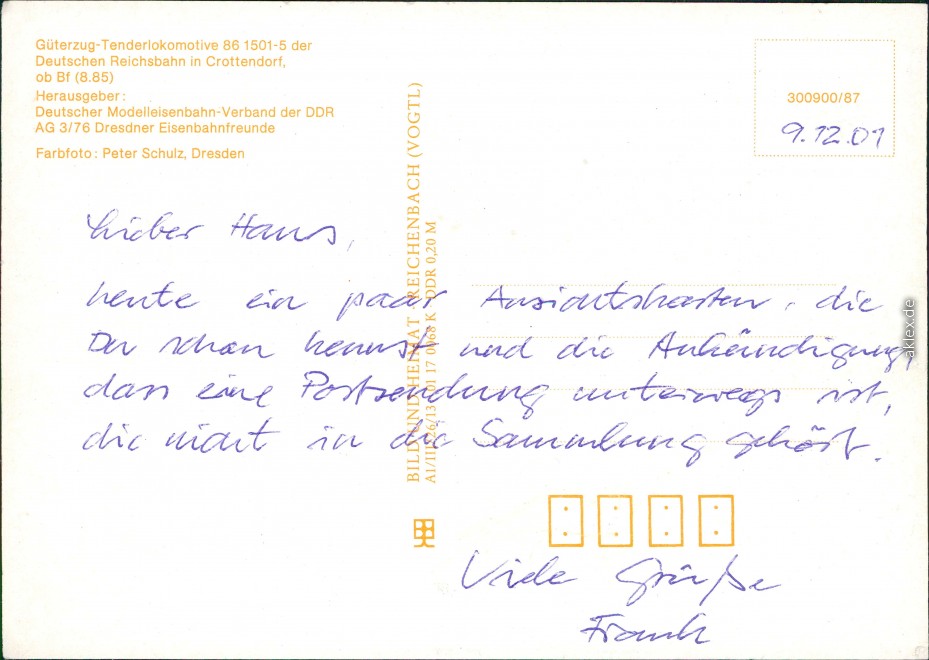 Güterzug-Tenderlokomotive 86 1501-5 der
Deutschen Reichsbahn in Crottendorf,
ob Bf (8.85)
Herausgeber:
Deutscher Modelleisenbahn-Verband der DDR
AG 3/76 Dresdner Eisenbahnfreunde
Farbfoto: Peter Schulz, Dresden
300900/87
9.12.01
BILD UND HEIMAT REICHENBACH (VOGTL)
K DDR 0,20 M
Lieber Hans,
heute ein paar Ansichtskarten, die
Du schon kennst und die Ankündigung,
dass eine Postsendung unterwegs ist,
die nicht in die Sammlung gehört.
Viele Grüße
Frank
aklex.de